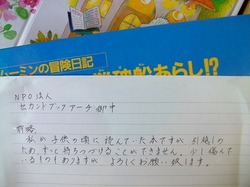 ムーミンの冒険日記
難破船あらし!?
NPO法人
セカンドブックアーチ 御中
前略
私の子供の頃に読んでいた本ですが 引越しの
ため、ずっと持ちつづけることができません。少し傷んで
いるものもありますが よろしくお願い致します。